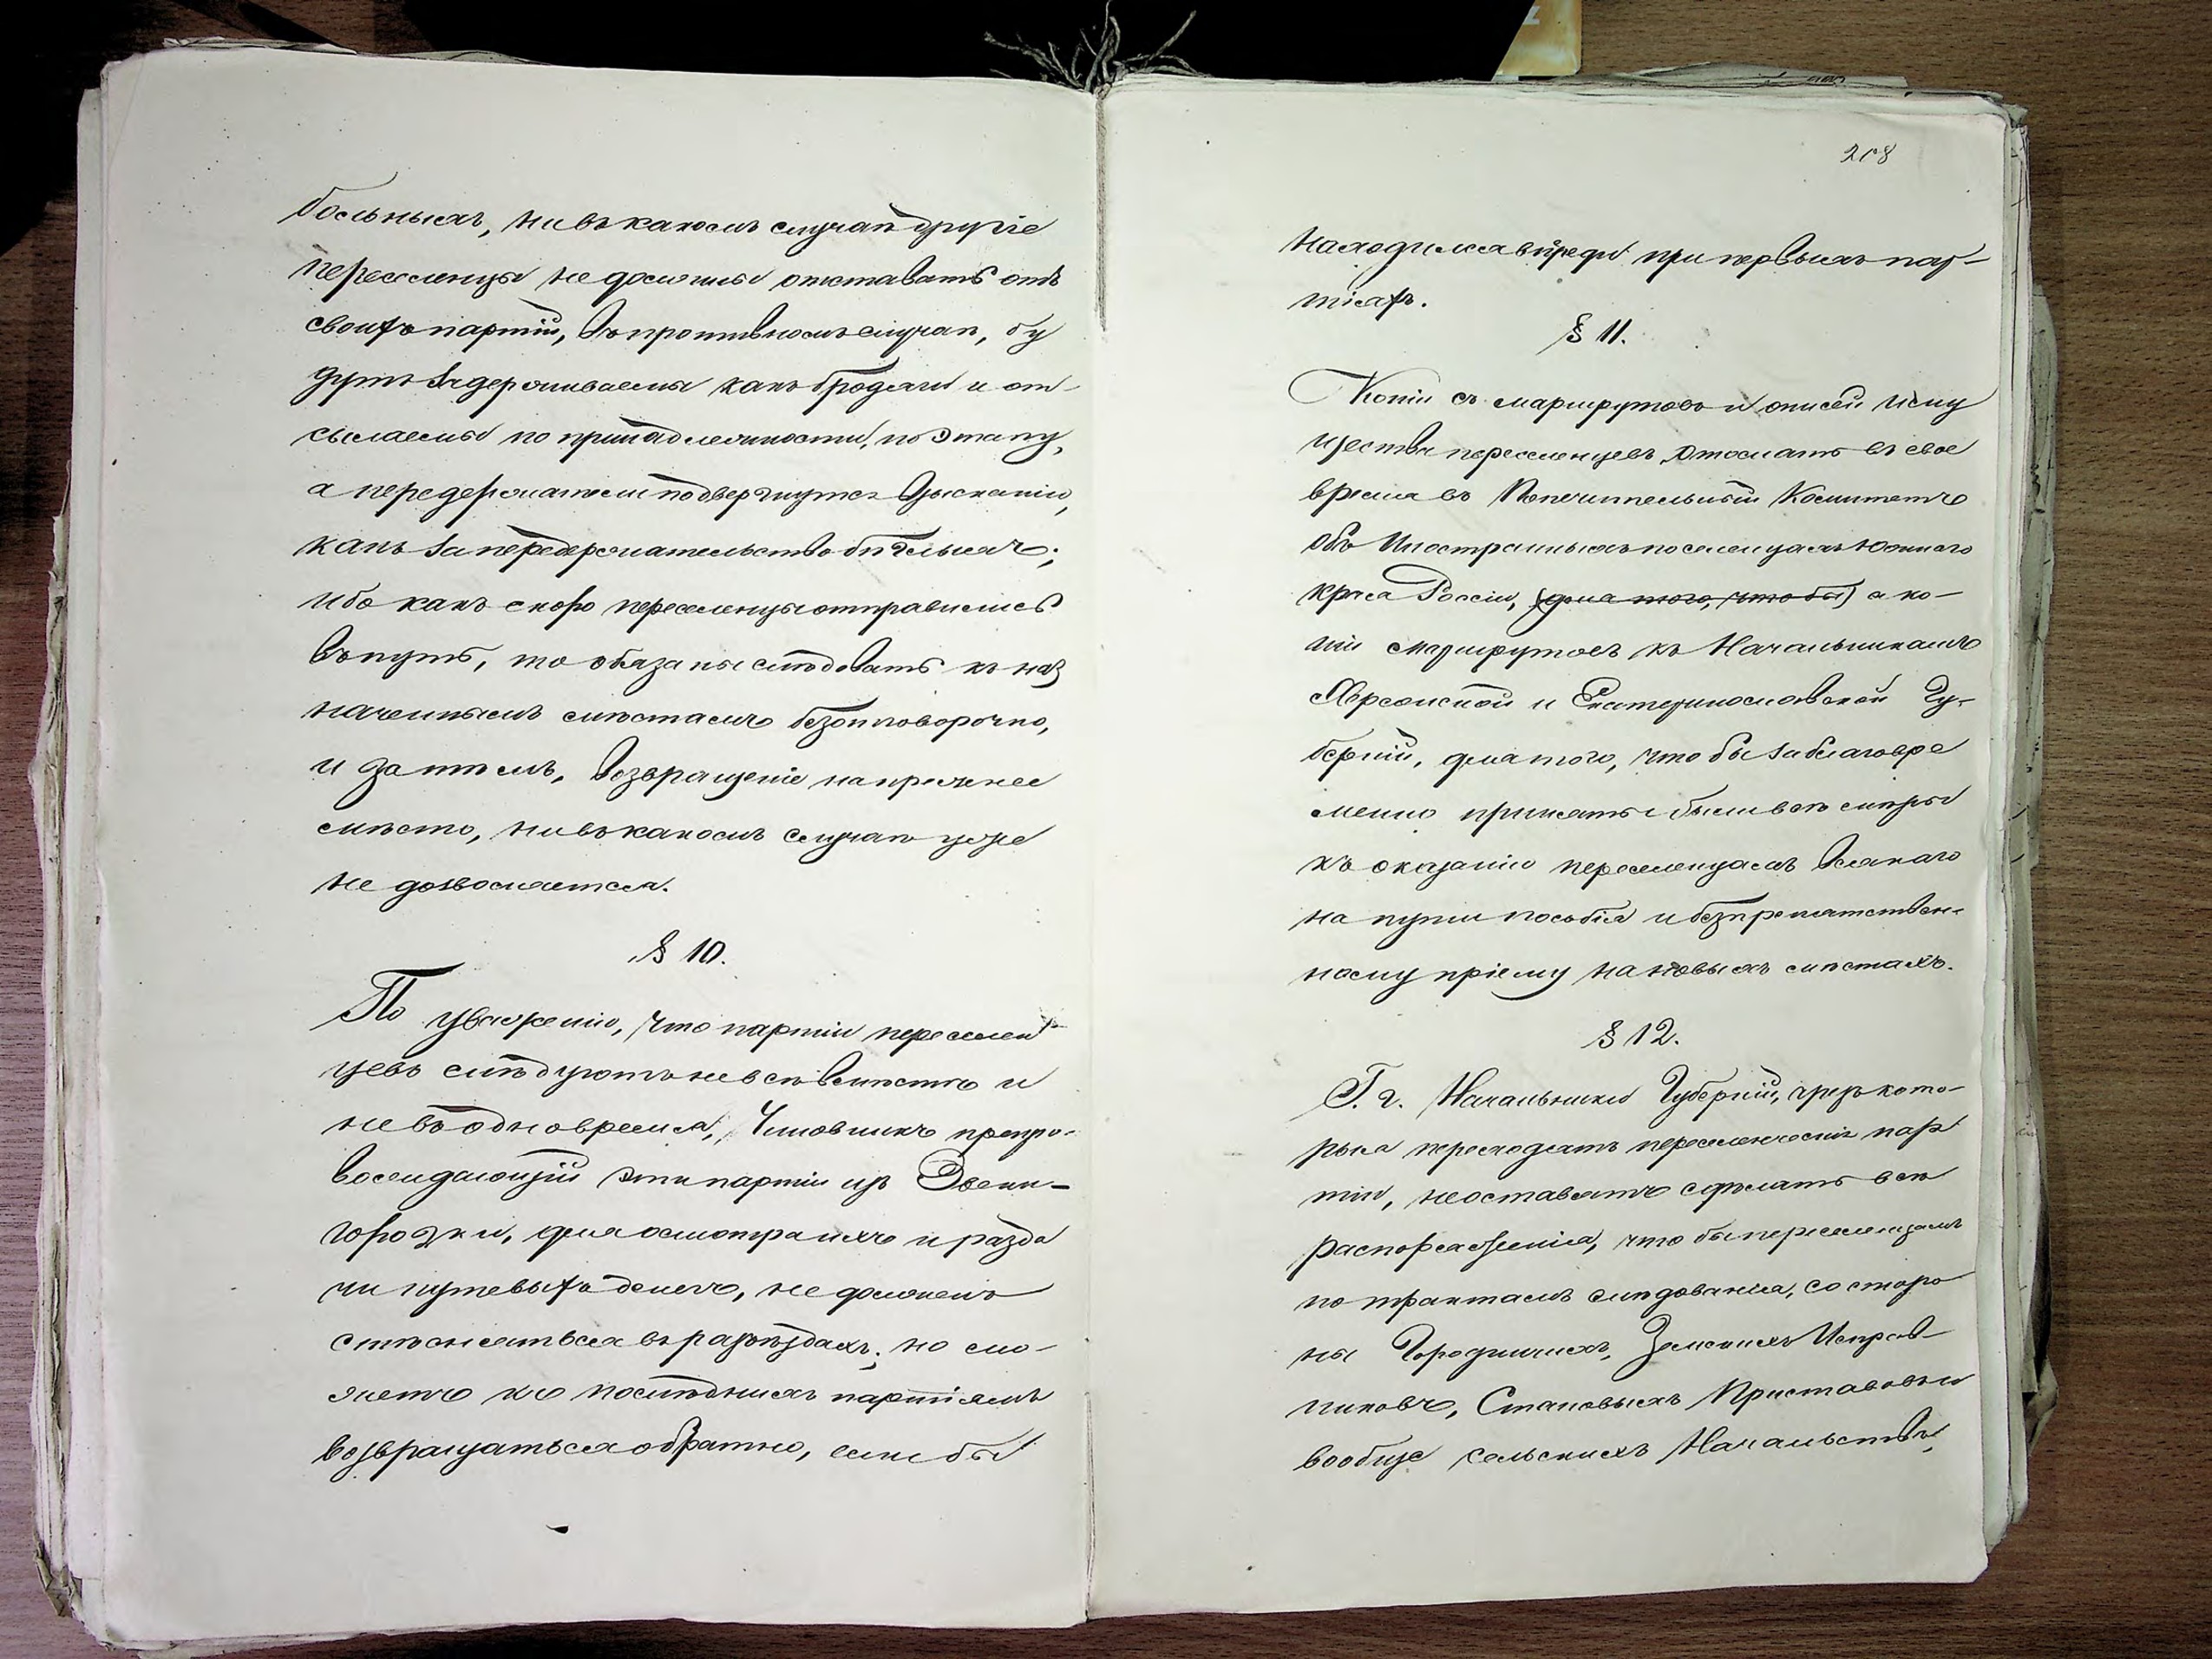 больныхъ, ни въ какомъ случаѣ другіе
переселенцы не должны отставать отъ
своихъ партій, въ противномъ случаѣ, бу
дутъ задерживаемы какъ бродяги и от-
сылаемы по принадлежности, по этапу,
а передержатели подвергнутся взысканію,
какъ за передержательство бѣглыхъ;
ибо какъ скоро переселенцы отправились
въ путь, то обязаны слѣдовать къ наз
наченнымъ мѣстамъ безотговорочно,
и за тѣмъ, возвращеніе на прежнее
мѣсто, ни въ какомъ случаѣ уже
не дозволяется.
§ 10.
По уваженію, что партіи переселен
цевъ слѣдуютъ не всѣ вмѣстѣ и
не въ одно время, Чиновникъ препро-
вождающій эти партіи изъ Звени-
городки, для осмотра ихъ и разда
чи путевыхъ денегъ, не долженъ
стѣсняться въ разъѣздахъ; но мо-
жетъ къ послѣднимъ партіямъ
возвращаться обратно, если бы
208
находился впереди при первыхъ пар-
тіяхъ.
§ 11.
Копіи съ маршрутовъ и описей иму
щества переселенцевъ отослать въ свое
время въ Попечительный Комитетъ
объ Иностранныхъ поселенцахъ Южнаго
края Россіи, (для того, что бы) а ко-
піи маршрутовъ къ Начальникамъ
Херсонской и Екатеринославской Гу-
берній, для того, что бы заблаговре
менно приняты были всѣ мѣры
къ оказанію переселенцамъ всякаго
на пути пособія и безпрепятствен-
ному пріему на новыхъ мѣстахъ.
§ 12.
Г. г. Начальники Губерній, чрезъ кото-
рыя переходятъ переселенческія пар
тіи, не оставятъ сдѣлать всѣ
распоряженія, что бы переселенцамъ
по трактамъ слѣдованія, со сторо
ны Городничихъ, Земскихъ Исправ-
никовъ, Становыхъ Приставовъ и
вообще сельскихъ Начальствъ,